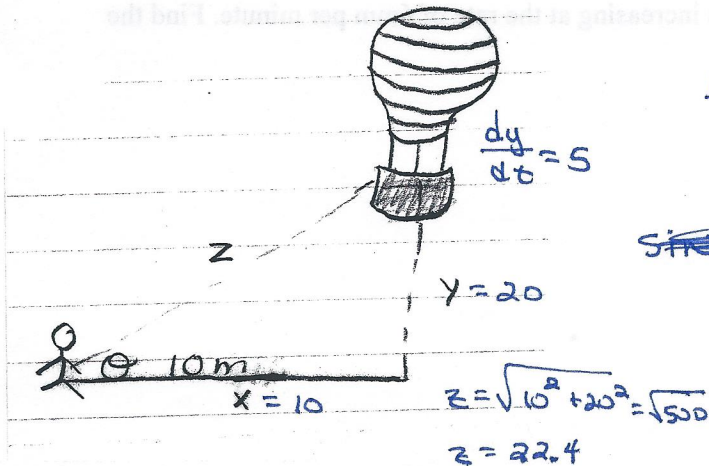 increasing at the rate of 5 m per minute. Find the
dy/dt = 5
z
y = 20
θ 10m
x = 10
z = √10² + 20² = √500
z = 22.4